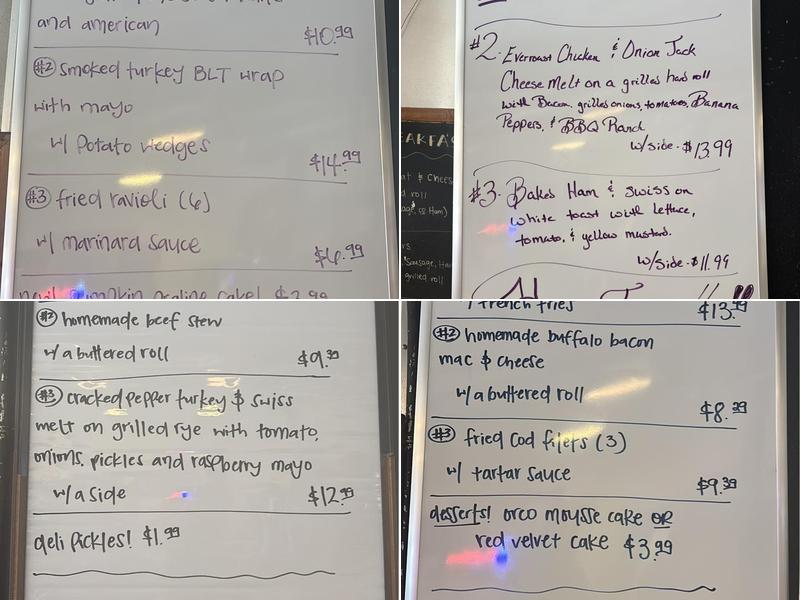 and american
$10.99
#2 smoked turkey BLT wrap
with mayo
w/ potato wedges
$14.99
#3 fried ravioli (6)
w/ marinara sauce
$6.99
pumpkin praline cake! $3.99
#2. Everroast Chicken & Onion Jack
Cheese melt on a grilled hard roll
with Bacon, grilled onions, tomatoes, Banana
Peppers, & BBQ Ranch
w/side - $13.99
#3. Baked Ham & Swiss on
white toast with lettuce,
tomato, & yellow mustard.
w/side - $11.99
& Chees
roll
Ham)
Sausage, Ha
grilled roll
#2 homemade beef stew
w/ a buttered roll
$9.39
#3 cracked pepper turkey & swiss
melt on grilled rye with tomato,
onions, pickles and raspberry mayo
w/ a side
$12.99
deli pickles! $1.99
french fries
$13.99
#2 homemade buffalo bacon
mac & cheese
w/ a buttered roll
$8.99
#3 fried cod filets (3)
w/ tartar sauce
$9.39
desserts! oreo mousse cake OR
red velvet cake $3.99